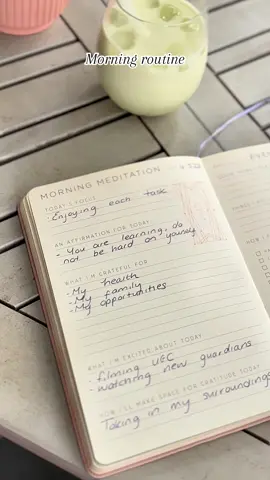 Morning routine
MORNING MEDITATION
TODAY'S FOCUS
Enjoying each task
AN AFFIRMATION FOR TODAY
- You are learning, do
not be hard on yourself
WHAT I'M GRATEFUL FOR
- My health
- My family
- My opportunities
WHAT I'M EXCITED ABOUT TODAY
- filming UGC
- watching new guardians
HOW I'LL MAKE SPACE FOR GRATITUDE TODAY
Taking in my surroundings